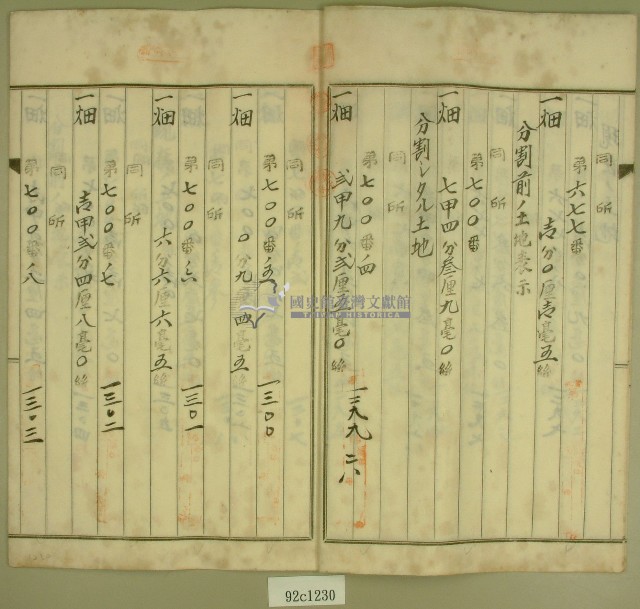 同所
第六七七番
一畑 壱分〇厘壱毫五絲
分割前ノ土地表示
同所
第七〇〇番
一畑 七甲四分叁厘九毫〇絲
分割シタル土地
同所
第七〇〇番ノ四
一畑 弐甲九分弐厘五毫〇絲
同所
第七〇〇番ノ五 一三〇〇
一畑 〇分九厘四毫五絲
同所
第七〇〇番ノ六 一三〇一
一畑 六分六厘六毫五絲
同所
第七〇〇番ノ七 一三〇二
一畑 壱甲弐分四厘八毫〇絲
同所
第七〇〇番ノ八 一三〇三
一畑
國史館臺灣文獻館
TAIWAN HISTORICA
92c1230